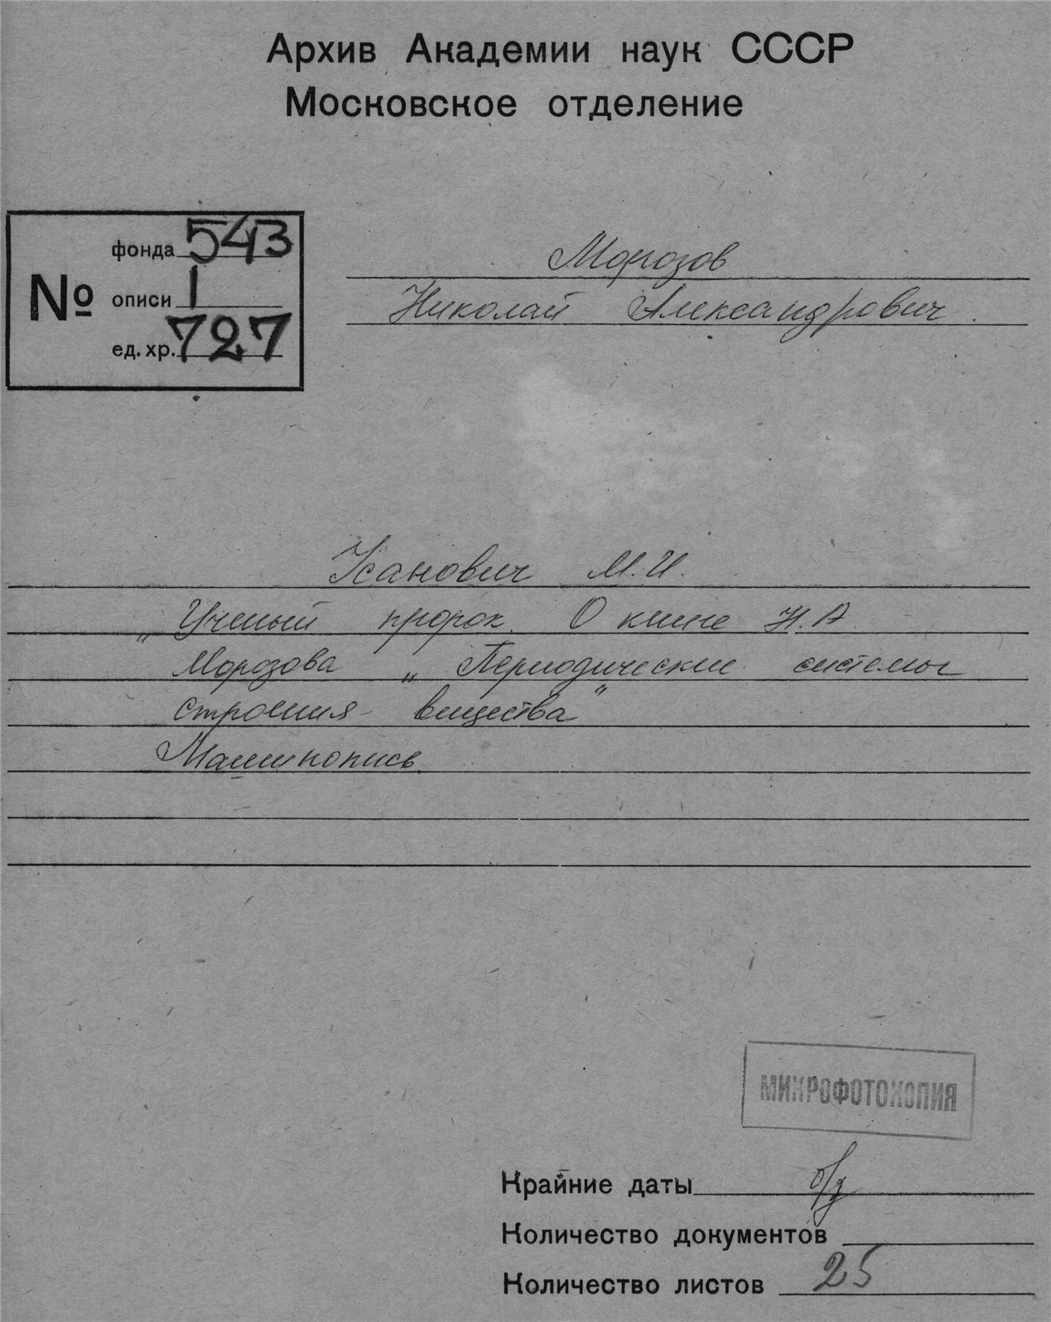 Архив Академии наук СССР
Московское отделение
№
фонда 543
описи 1
ед. хр. 727
Морозов
Николай Александрович.
Усанович М.И.
„Ученый пророк. О книге Н.А
Морозова „Периодические системы
строения вещества"
Машинопись.
МИКРОФОТОКОПИЯ
Крайние даты б/д
Количество документов
Количество листов 25